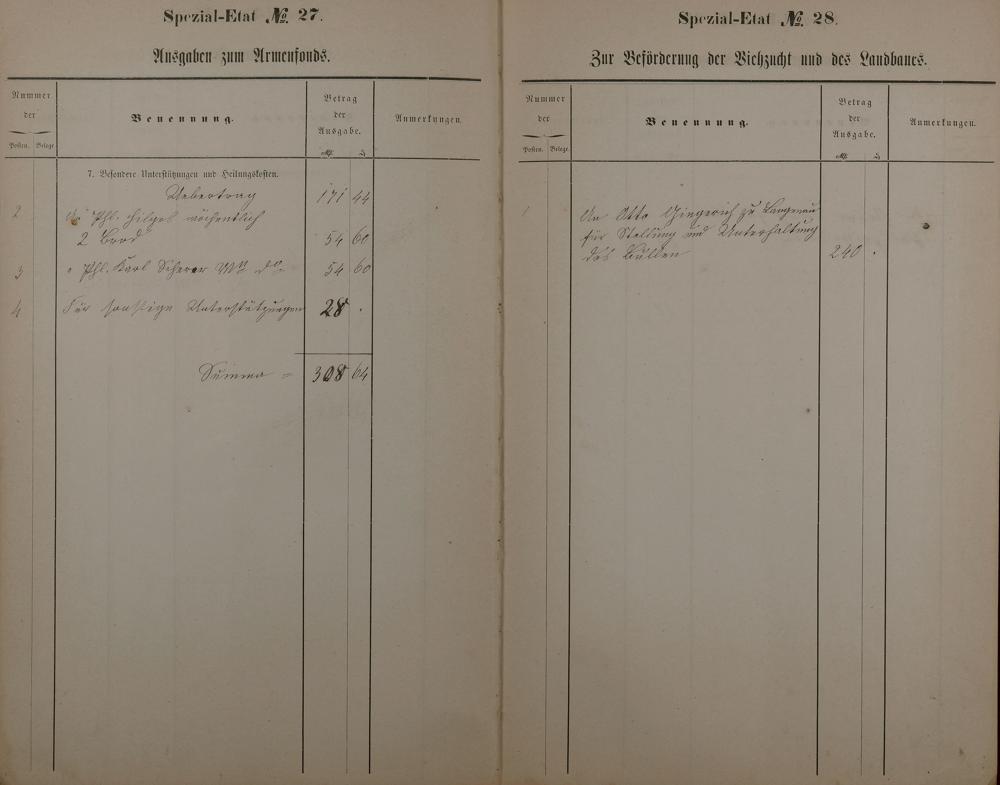 Spezial-Etat № 27.
Ausgaben zum Armenfonds.
Nummer der
Posten. Belege.
Benennung.
Betrag der Ausgabe.
ℳ ₰
Anmerkungen.
7. Besondere Unterstützungen und Heilungskosten.
Uebertrag 171 44
2 An Phl. Hilges wöchentlich
2 Brod 54 60
3 " Phl. Karl Scherer Wtt do 54 60
4 Für sonstige Unterstützungen 28 .
Summa = 308 64
Spezial-Etat № 28.
Zur Beförderung der Viehzucht und des Landbaues.
Nummer der
Posten. Belege.
Benennung.
Betrag der Ausgabe.
ℳ ₰
Anmerkungen.
1 An Otto Gingerich zu Langenau
für Stellung und Unterhaltung
des Bullen 240 .